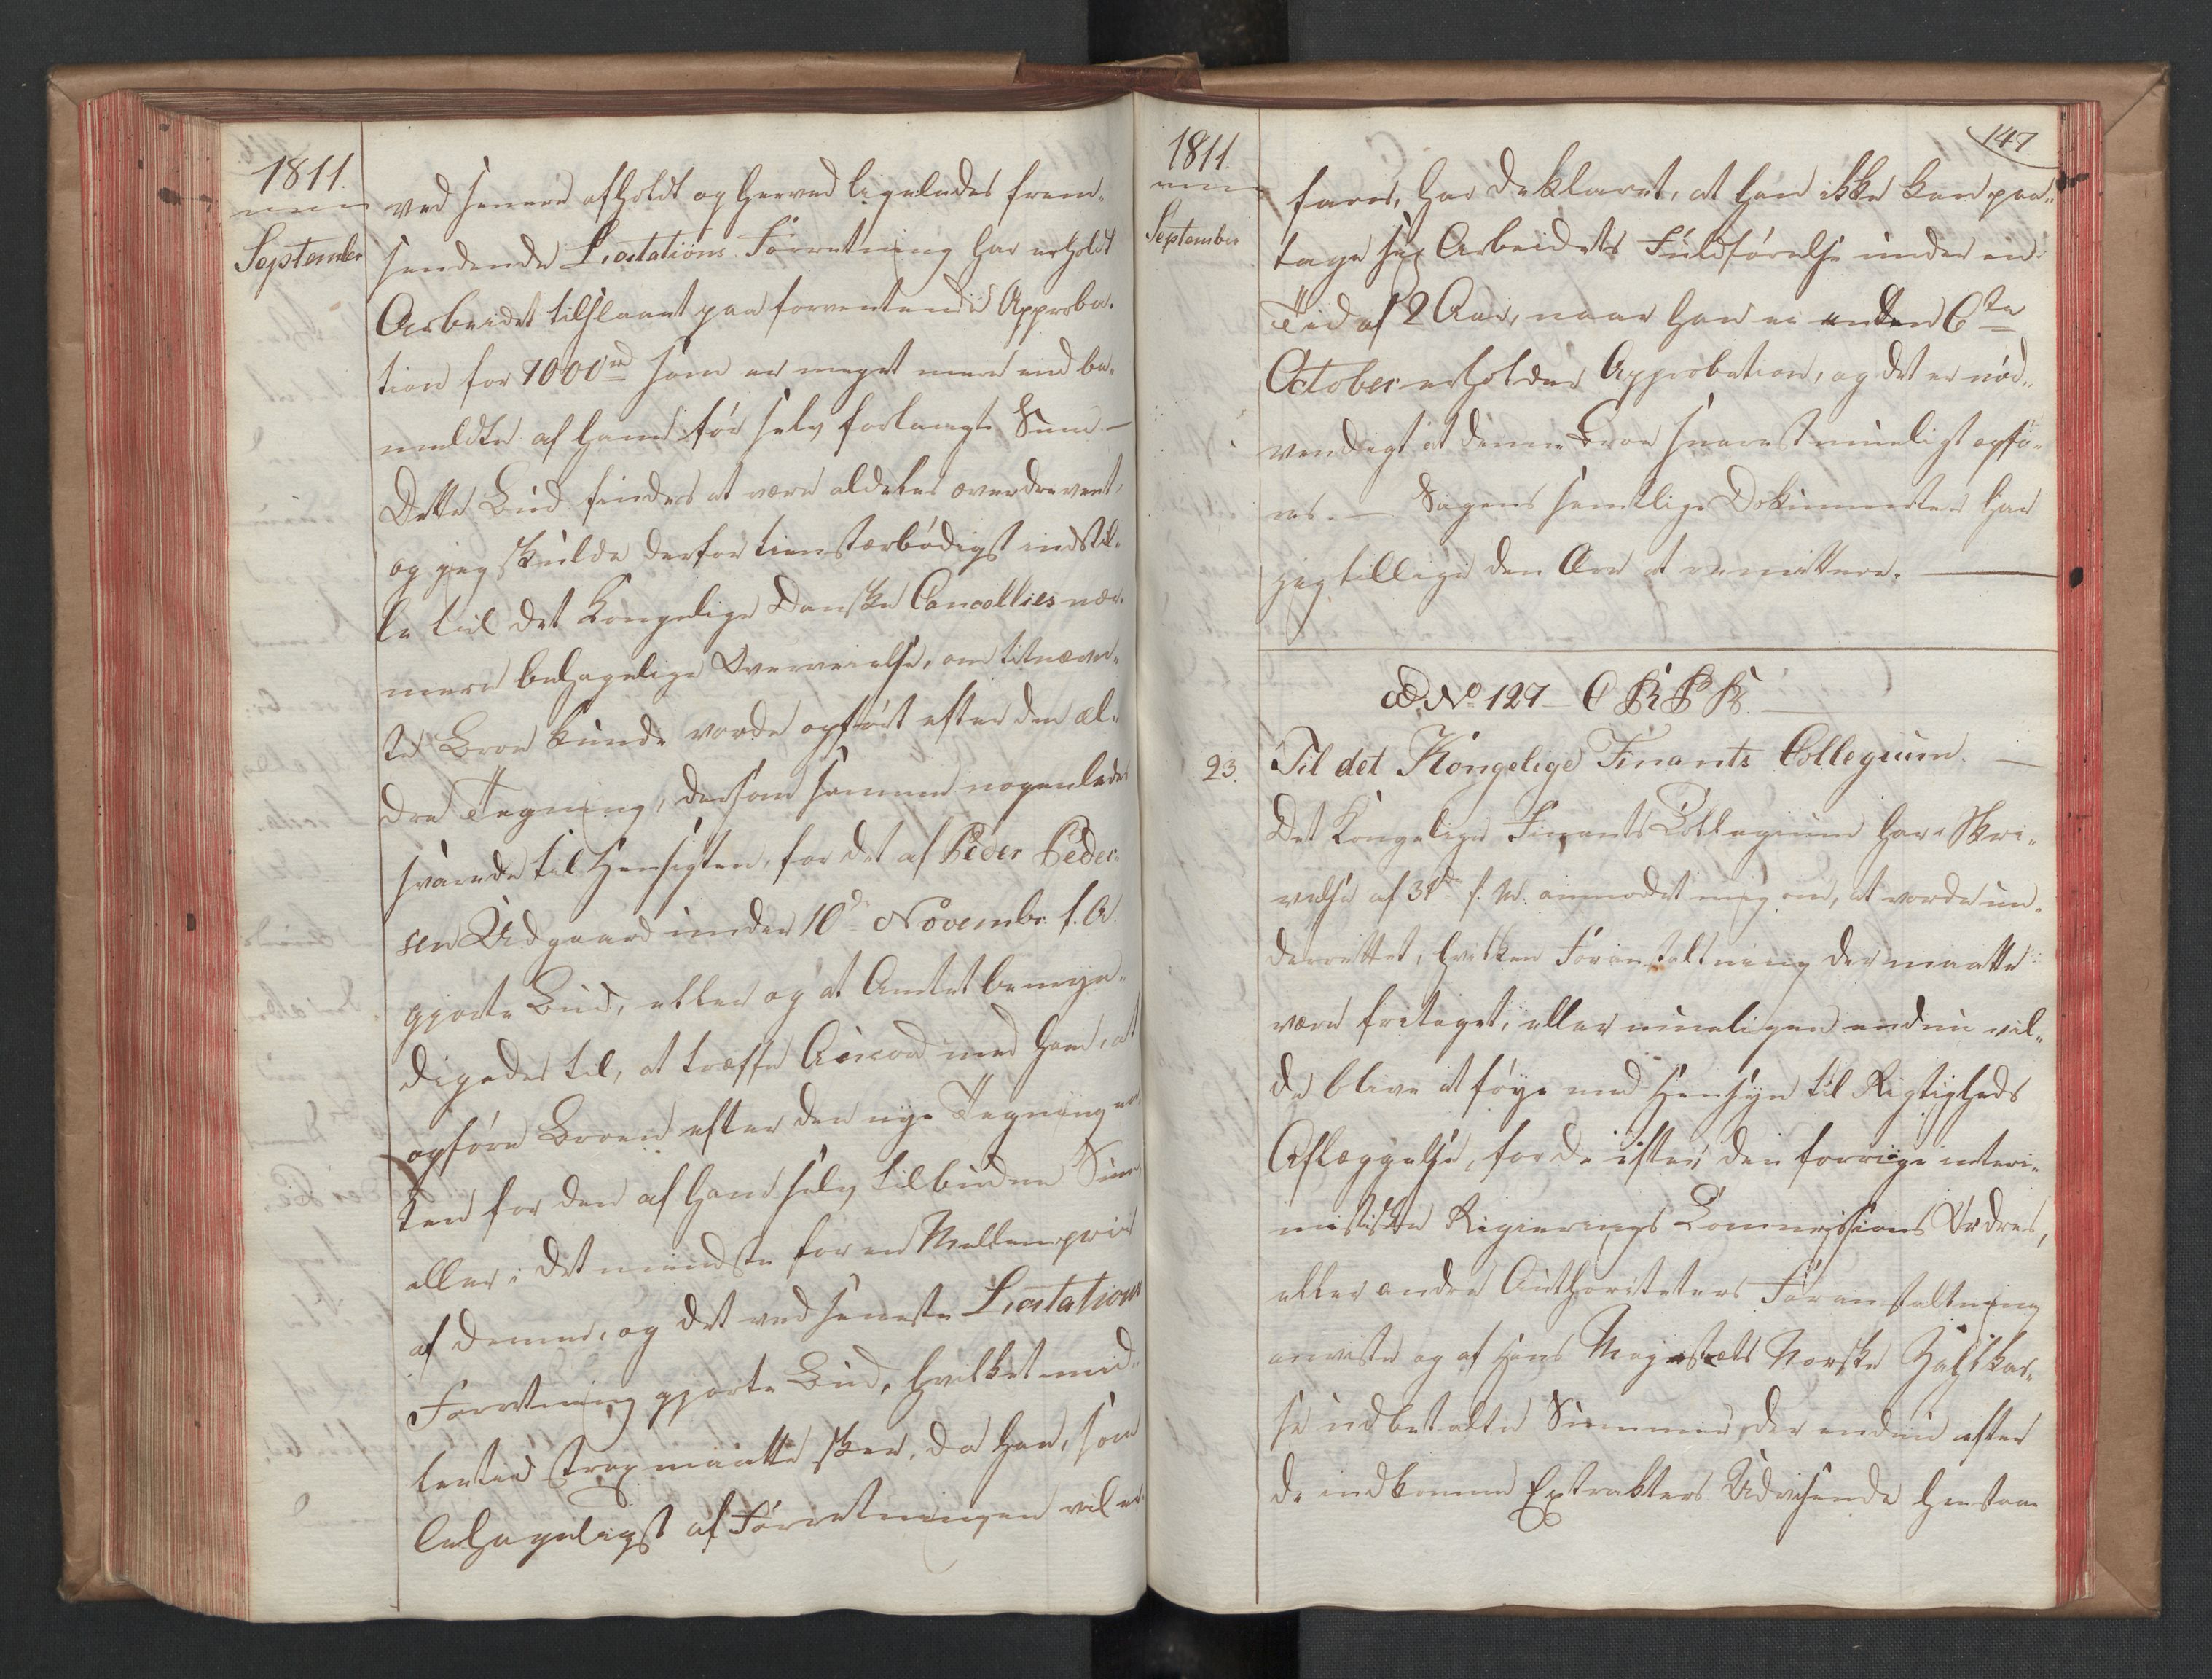 1811.
September
ved senere afholdt og herved ligeledes frem-
sendende Licitations Forretning har erholdt
Arbeidet tilslaaet paa forventende Approba-
tion for 7000 rd som er meget mere end be-
meldte af ham før selv forlangte Sum. —
Dette Bud findes at være aldeles overdrevent,
og jeg skulde derfor tienstærbødigst indstil-
le til det Kongelige Danske Cancellies nær-
mere behagelige Overveielse, om titnævn-
te Broe kunde vorde opført efter den æl-
dre Tegning, dersom samme nogenledes
svarede til Hensigten, for det af Peder Peder-
sen Udgaard under 10de Novembr. f. A.
gjorte Bud, eller og at Amtet bemyn-
digedes til, at træffe Accord med ham, at
opføre Broen efter den nye Tegning en-
ten for den af ham selv tilbudne Sum
eller i det mindste for en Mellempriis
af denne, og det ved seneste Licitations
Forretning gjorte Bud, hvilket mid-
lertid strax maatte skee, da han, som
behageligst af Forretningen vil er-
1811
September
147
fares, har deklareret, at han ikke kan paa-
tage sig Arbeidets Fuldførelse under en
Tid af 2 Aar, naar han ei inden 6te
October erholder Approbation, og det er nød-
vendigt at denne Broe snarest mueligt opfø-
res. — Sagens samtlige Dokumenter har
jeg tillige den Ære at remittere. —
No 127 C R P K
23.
Til det Kongelige Finants Collegium. —
Det Kongelige Finants Collegium har i Skri-
velse af 31de f. M. anmodet mig om, at vorde un-
derrettet, hvilken Foranstaltning der maatte
være foretaget, eller mueligen endnu vil-
de blive at føye med Hensyn til Rigtigheds
Aflæggelse, for de efter den forrige interi-
mistiske Regierings Commissions Ordres,
eller andre Authoriteters Foranstaltning
anviste og af Hans Majestæts Norske Zahlkas-
se udbetalte Summer, der endnu efter
de indkomne Extrakters Udvisende henstaae